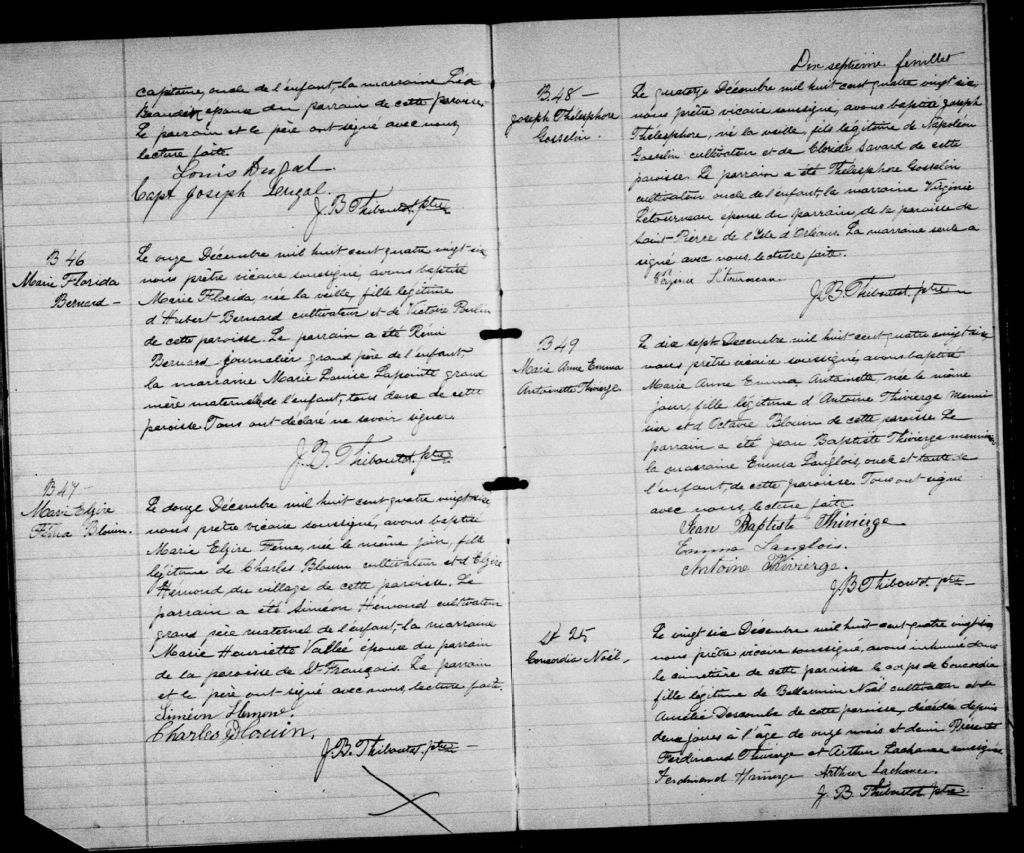 capitaine, oncle de l'enfant, la marraine Léa
Beaudet épouse du parrain de cette paroisse
Le parrain et le père ont signé avec nous,
lecture faite.
Louis Dugal
Capt Joseph Dugal.
J. B. Thiboutot ptre
B 46
Marie Florida
Bernard —
Le onze Décembre mil huit cent quatre vingt six
nous prêtre vicaire soussigné, avons baptisé
Marie Florida, née la veille, fille légitime
d'Hubert Bernard cultivateur et de Victoire Poulin
de cette paroisse. Le parrain a été Rémi
Bernard journalier grand père de l'enfant,
la marraine Marie Louise Lapointe grand
mère maternelle de l'enfant, tous deux de cette
paroisse Tous ont déclaré ne savoir signer
J. B. Thiboutot ptre
B 47 —
Marie Elzire
Féma Blouin.
Le douze Décembre mil huit cent quatre vingt six
nous prêtre vicaire soussigné, avons baptisé
Marie Elzire Féma, née le même jour, fille
légitime de Charles Blouin cultivateur et d'Elzire
Hémond du village de cette paroisse. Le
parrain a été Siméon Hémond cultivateur
grand père maternel de l'enfant, la marraine
Marie Henriette Vallée épouse du parrain
de la paroisse de St François. Le parrain
et le père ont signé avec nous, lecture faite.
Siméon Hemond.
Charles Blouin.
J. B. Thiboutot ptre —
Dix septième feuillet
B 48 —
Joseph Thélesphore
Gosselin.
Le quatorze Décembre mil huit cent quatre vingt six
nous prêtre vicaire soussigné, avons baptisé Joseph
Thélesphore, né la veille, fils légitime de Napoléon
Gosselin cultivateur et de Clorida Savard de cette
paroisse. Le parrain a été Thélesphore Gosselin
cultivateur oncle de l'enfant, la marraine Virginie
Létourneau épouse du parrain, de la paroisse de
Saint Pierre de l'Isle d'Orléans. La marraine seule a
signé avec nous, lecture faite.
Virginie Létourneau
J. B. Thiboutot, ptre
B 49
Marie Anne Emma
Antoinette Thivierge
Le dix sept Décembre mil huit cent quatre vingt six
nous prêtre vicaire soussigné, avons baptisé
Marie Anne Emma Antoinette, née le même
jour, fille légitime d'Antoine Thivierge menui
sier et d'Octavie Blouin de cette paroisse Le
parrain a été Jean Baptiste Thivierge menuisier
la marraine Emma Langlois, oncle et tante de
l'enfant, de cette paroisse Tous ont signé
avec nous, lecture faite
Jean Baptiste Thivierge
Emma Langlois.
Antoine Thivierge.
J. B. Thiboutot ptre —
S 25
Concordia Noël.
Le vingt six Décembre mil huit cent quatre vingt six
nous prêtre vicaire soussigné, avons inhumé dans
le cimetière de cette paroisse le corps de Concordia
fille légitime de Bellarmin Noël cultivateur et de
Aurélie Descombe de cette paroisse, décédée depuis
deux jours à l'âge de onze mois et demi Présents
Ferdinand Thivierge et Arthur Lachance soussignés
Ferdinand Thivierge Arthur Lachance.
J. B. Thiboutot ptre